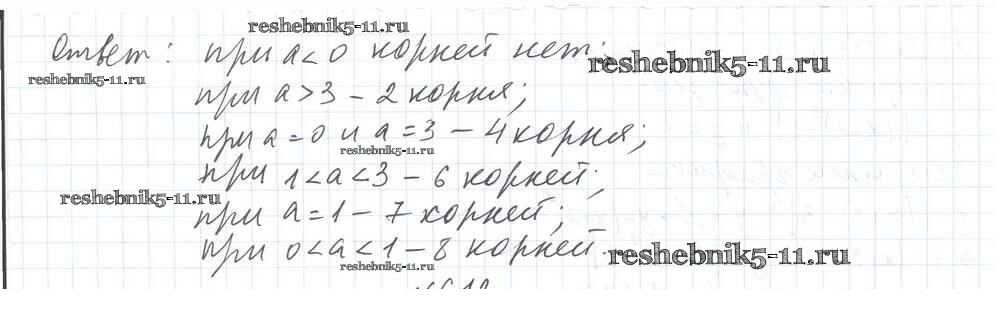 reshebnik5-11.ru
Ответ: при a<0 корней нет;
reshebnik5-11.ru
reshebnik5-11.ru
при a>3 – 2 корня;
при a=0 и a=3 – 4 корня;
reshebnik5-11.ru
при 1<a<3 – 6 корней;
reshebnik5-11.ru
при a=1 – 7 корней;
при 0<a<1 – 8 корней.
reshebnik5-11.ru
reshebnik5-11.ru